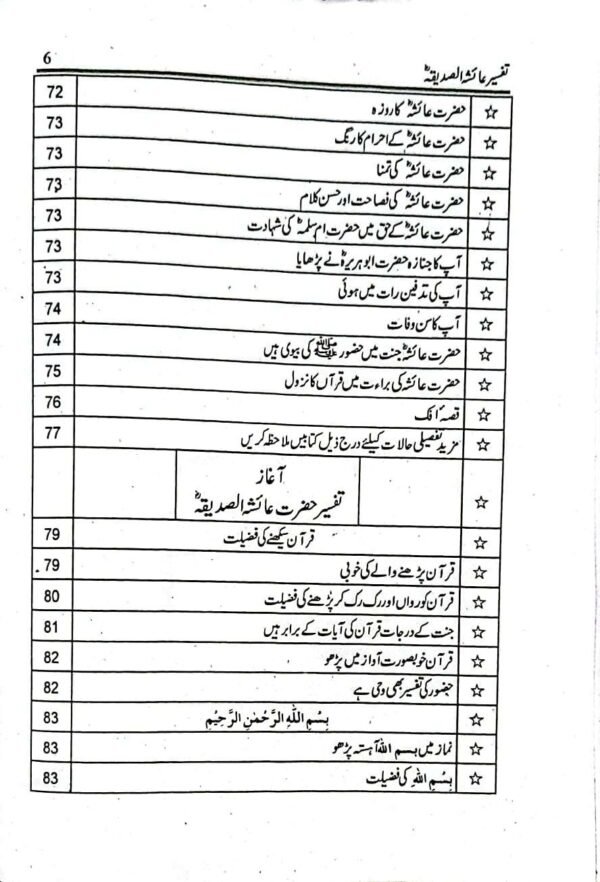 6
تفسیر عائشہ الصدیقہؓ
☆ حضرت عائشہؓ کا روزہ 72
☆ حضرت عائشہؓ کے احرام کا رنگ 73
☆ حضرت عائشہؓ کی تمنا 73
☆ حضرت عائشہؓ کی فصاحت اور حسن کلام 73
☆ حضرت عائشہؓ کے حق میں حضرت ام سلمہؓ کی شہادت 73
☆ آپ کا جنازہ حضرت ابو ہریرہؓ نے پڑھایا 73
☆ آپ کی تدفین رات میں ہوئی 73
☆ آپ کا سن وفات 74
☆ حضرت عائشہؓ جنت میں حضور ﷺ کی بیوی ہیں 74
☆ حضرت عائشہؓ کی براءت میں قرآن کا نزول 75
☆ قصۂ افک 76
☆ مزید تفصیلی حالات کیلئے درج ذیل کتابیں ملاحظہ کریں 77
☆ آغاز
تفسیر حضرت عائشہ الصدیقہؓ
☆ قرآن سیکھنے کی فضیلت 79
☆ قرآن پڑھنے والے کی خوبی 79
☆ قرآن کو رواں اور رک رک کر پڑھنے کی فضیلت 80
☆ جنت کے درجات قرآن کی آیات کے برابر ہیں 81
☆ قرآن خوبصورت آواز میں پڑھو 82
☆ حضور کی تفسیر بھی وحی ہے 82
☆ بِسْمِ اللّٰهِ الرَّحْمٰنِ الرَّحِيْمِ 83
☆ نماز میں بسم اللہ آہستہ پڑھو 83
☆ بِسْمِ اللّٰهِ کی فضیلت 83